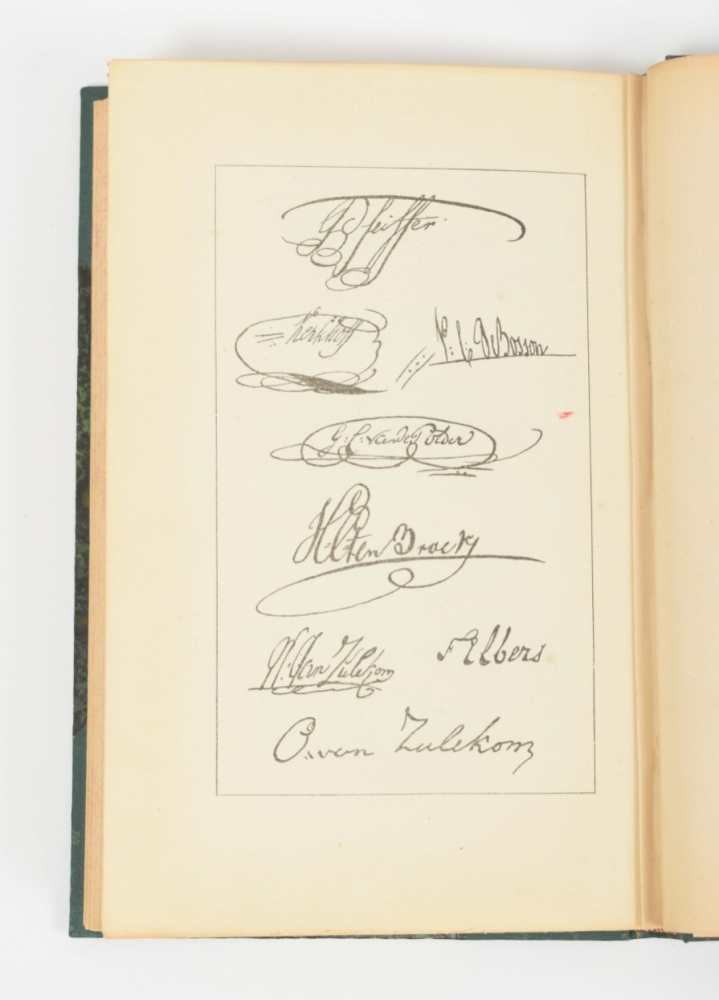 G Pfeiffer
Kerkhoff
P: C: De Bosson
G: C: van de Polder
H: C: ten Broek
N: van Zulekom
F Albers
C. van Zulekom